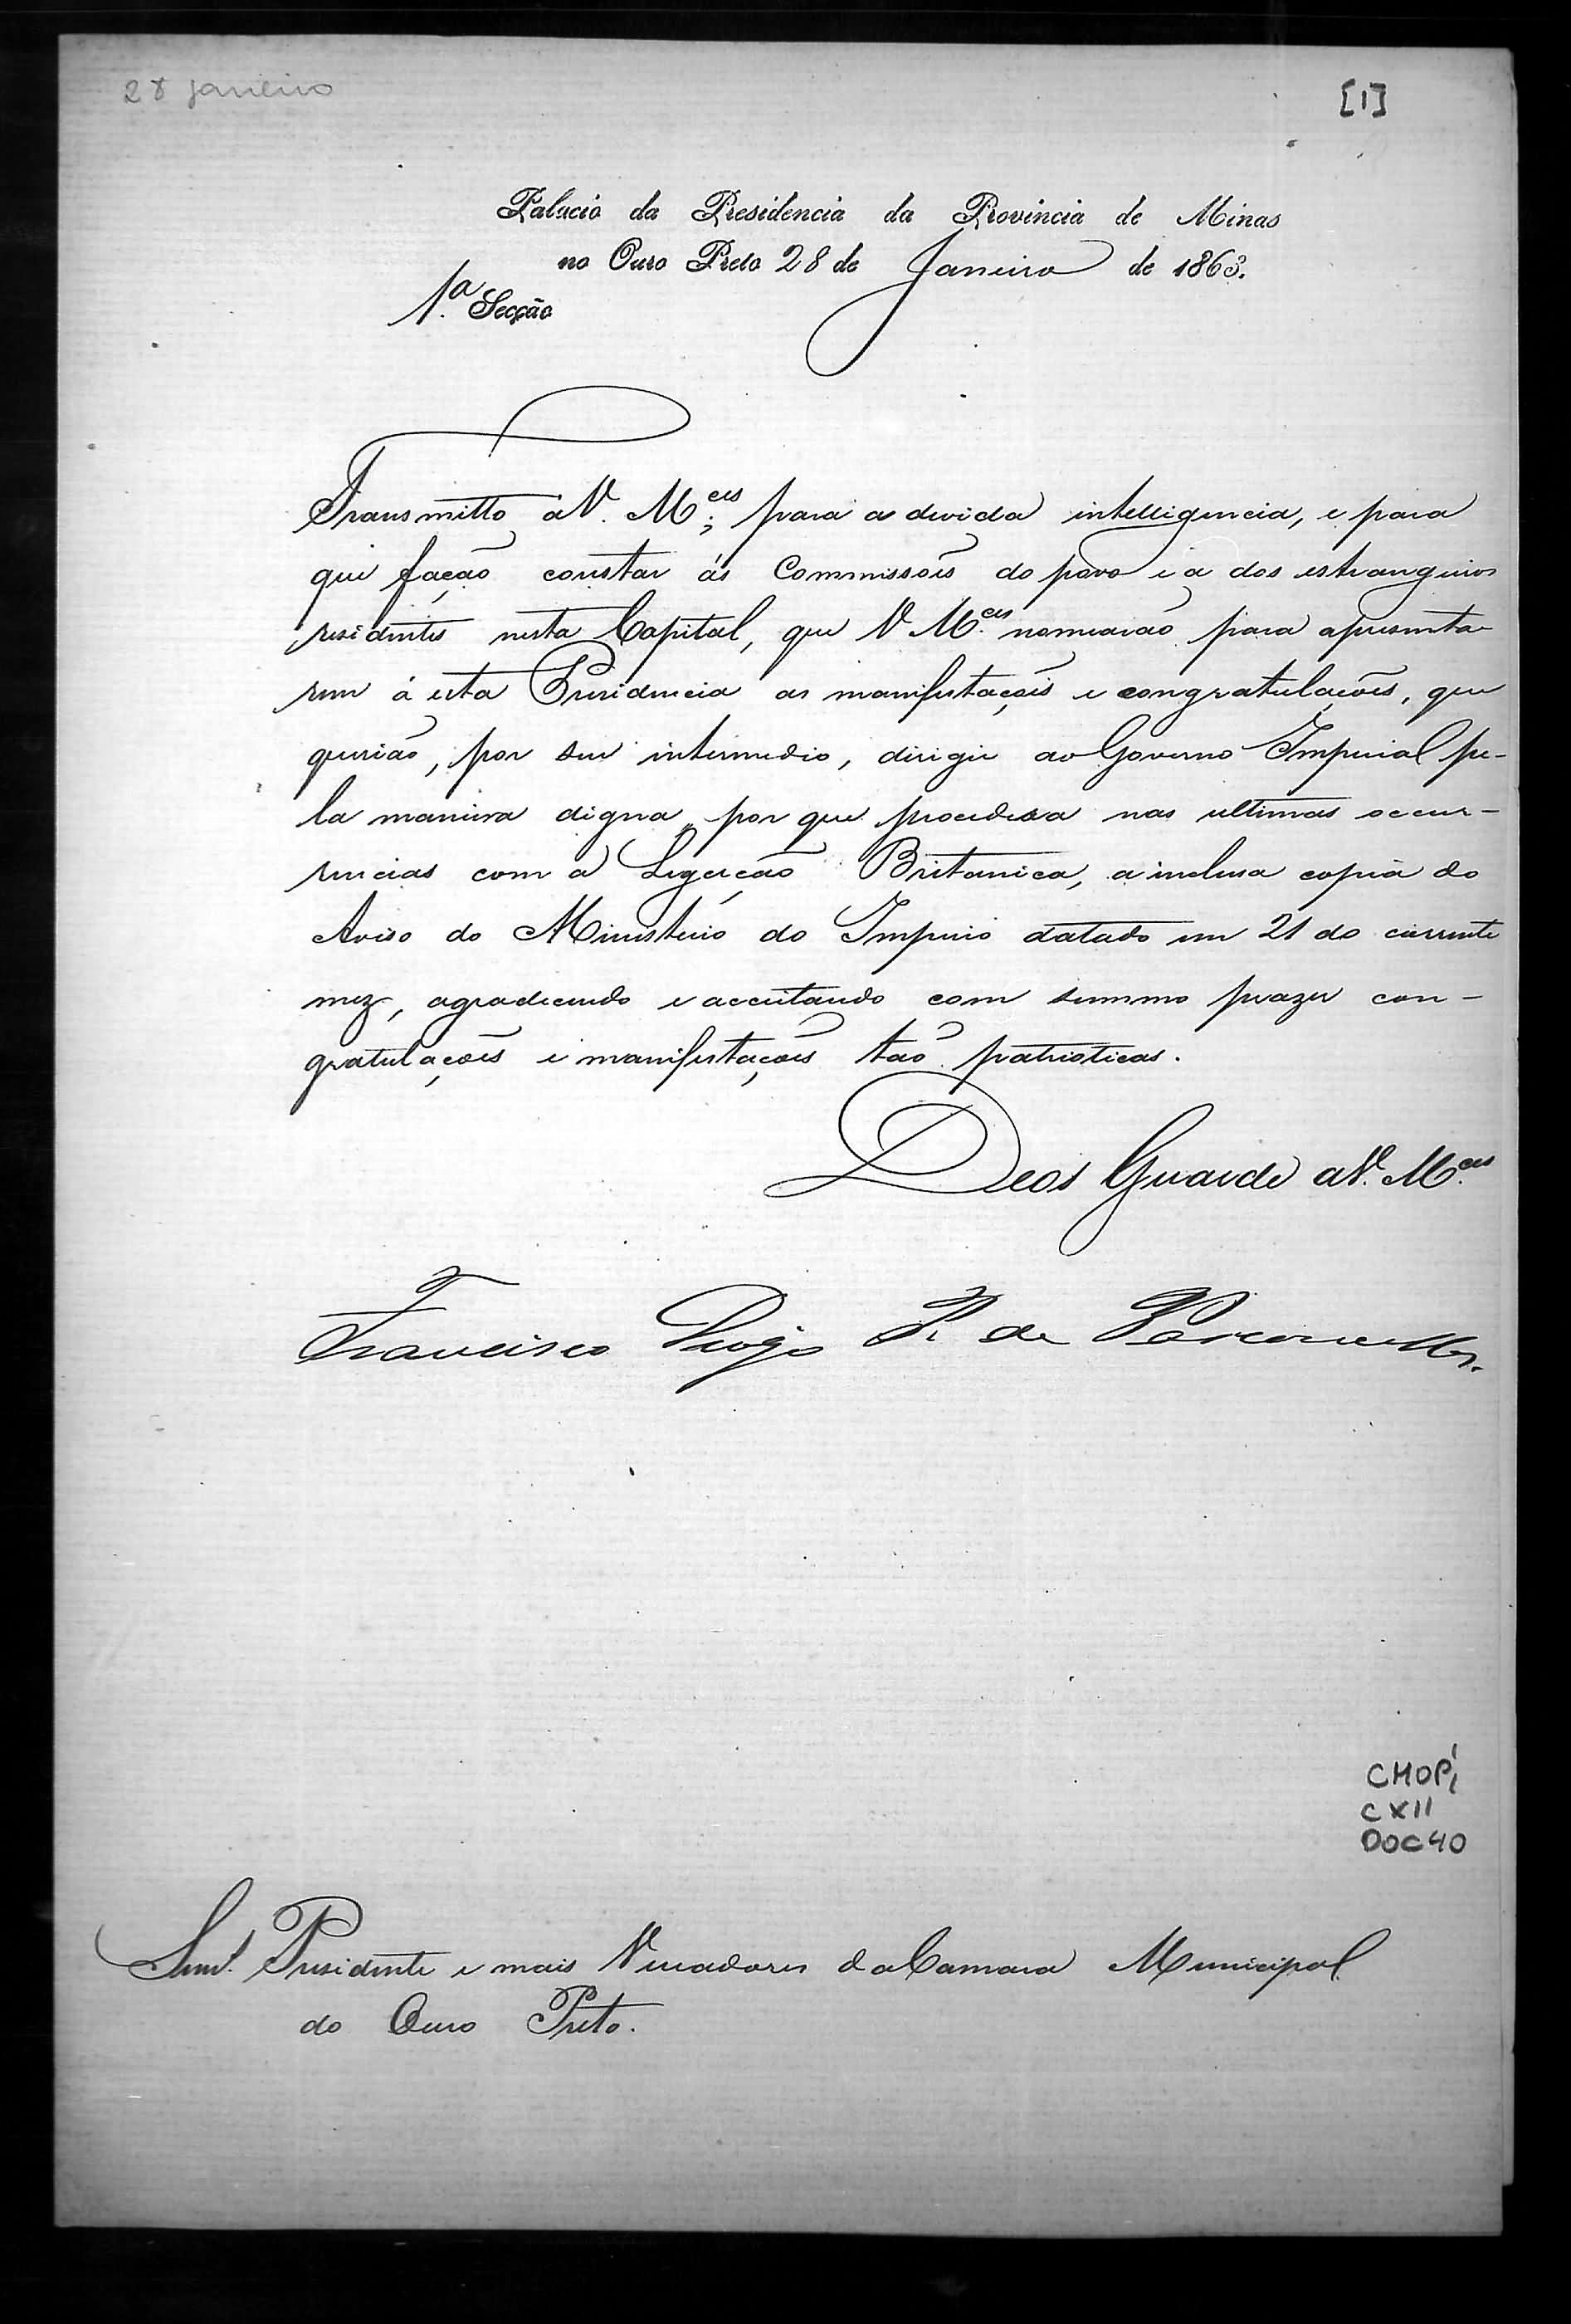 28 janeiro
[1]
Palacio da Presidencia da Provincia de Minas
no Ouro Preto 28 de Janeiro de 1863.
1.ª Secção
Transmitto a V. M.ces, para a devida intelligencia, e para
que fação constar ás Commissões do povo e a dos estrangeiros
residentes nesta Capital, que V M.ces nomearão para apresenta
rem á esta Presidencia as manifestações e congratulações, que
querião, por seu intermedio, dirigir ao Governo Imperial pe-
la maneira digna por que procedera nas ultimas occur-
rencias com a Legação Britanica, a inclusa copia do
Aviso do Ministerio do Imperio datado em 21 do corrente
mez, agradecendo e acceitando com summo prazer con-
gratulações e manifestações tão patrioticas.
Deos Guarde a V. M.ces
Francisco Diogo P. de Vasconcellos.
CMOP,
CX11
DOC40
Snr.s Presidente e mais Vereadores da Camara Municipal
do Ouro Preto.